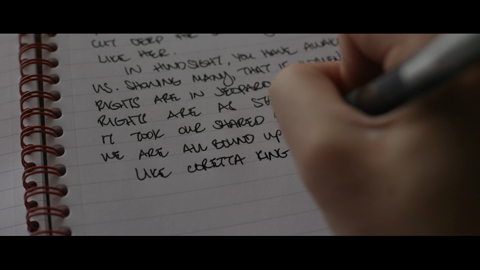 CUT DEEP
LIKE HER.
IN HINDSIGHT, YOU HAVE
US. SHOWING MANY, THAT IS
RIGHTS ARE IN JEOPARD
RIGHTS ARE AS
IT TOOK OUR SHARED
WE ARE ALL BOUND UP
LIKE CORETTA KING